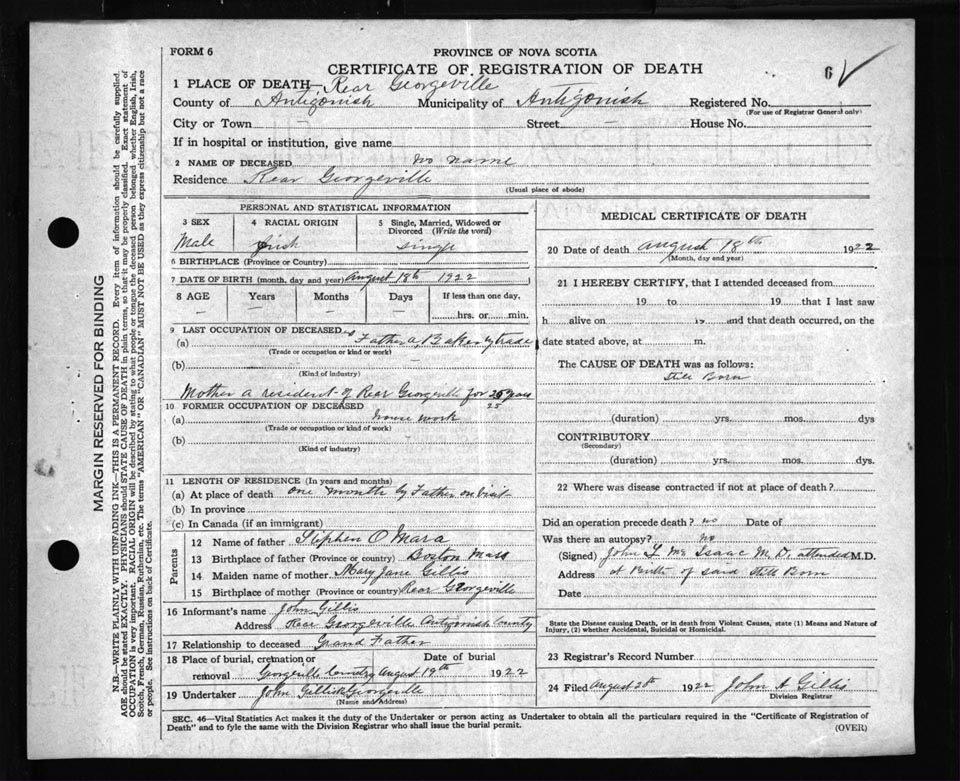 FORM 6
PROVINCE OF NOVA SCOTIA
CERTIFICATE OF REGISTRATION OF DEATH
6
1 PLACE OF DEATH— Rear Georgeville
County of Antigonish Municipality of Antigonish Registered No.
(For use of Registrar General only)
City or Town — Street — House No.
If in hospital or institution, give name
2 NAME OF DECEASED no name
Residence Rear Georgeville
(Usual place of abode)
PERSONAL AND STATISTICAL INFORMATION
3 SEX 4 RACIAL ORIGIN 5 Single, Married, Widowed or Divorced (Write the word)
Male Irish single
6 BIRTHPLACE (Province or Country)
7 DATE OF BIRTH (month, day and year) August 18th 1922
8 AGE Years Months Days If less than one day,
— — — — hrs. or min.
9 LAST OCCUPATION OF DECEASED
(a) Father a Bakery trade
(Trade or occupation or kind or work)
(b)
(Kind of industry)
Mother a resident of Rear Georgeville for 25 years
25
10 FORMER OCCUPATION OF DECEASED
(a) house work
(Trade or occupation or kind of work)
(b)
(Kind of industry)
11 LENGTH OF RESIDENCE (In years and months)
(a) At place of death one month by Father on visit
(b) In province
(c) In Canada (if an immigrant)
Parents
12 Name of father Stephen O Mara
13 Birthplace of father (Province or country) Boston Mass
14 Maiden name of mother Mary Jane Gillis
15 Birthplace of mother (Province or country) Rear Georgeville
16 Informant's name John Gillis
Address Rear Georgeville Antigonish County
17 Relationship to deceased Grand Father
18 Place of burial, cremation or removal Date of burial
Georgeville Cemetry August 19th 1922
19 Undertaker John Gillis Georgeville
(Name and Address)
MEDICAL CERTIFICATE OF DEATH
20 Date of death August 18th 1922
(Month, day and year)
21 I HEREBY CERTIFY, that I attended deceased from
19 to 19 that I last saw
h alive on is and that death occurred, on the
date stated above, at m.
The CAUSE OF DEATH was as follows:
Still Born
(duration) yrs. mos. dys
CONTRIBUTORY
(Secondary)
(duration) yrs. mos. dys.
22 Where was disease contracted if not at place of death?
Did an operation precede death? no Date of
Was there an autopsy? No
(Signed) John L. Mc Isaac M. D. attended M.D.
Address at Birth of said Still Born
Date
State the Disease causing Death, or in death from Violent Causes, state (1) Means and Nature of
Injury, (2) whether Accidental, Suicidal or Homicidal.
23 Registrar's Record Number
24 Filed August 20th 1922 John A Gillis
Division Registrar
SEC. 46—Vital Statistics Act makes it the duty of the Undertaker or person acting as Undertaker to obtain all the particulars required in the "Certificate of Registration of
Death" and to fyle the same with the Division Registrar who shall issue the burial permit.
(OVER)
MARGIN RESERVED FOR BINDING
N.B.—WRITE PLAINLY WITH UNFADING INK—THIS IS A PERMANENT RECORD. Every item of information should be carefully supplied.
AGE should be stated EXACTLY. PHYSICIANS should STATE CAUSE OF DEATH in plain terms, so that it may be properly classified. Exact statement of
OCCUPATION is very important. RACIAL ORIGIN will be described by stating to what people or tongue the deceased person belonged whether English, Irish,
Scotch, French, German, Russian, Ruthenian, etc. The terms "AMERICAN" OR "CANADIAN" MUST NOT BE USED as they express citizenship but not a race
or people. See instructions on back of Certificate.